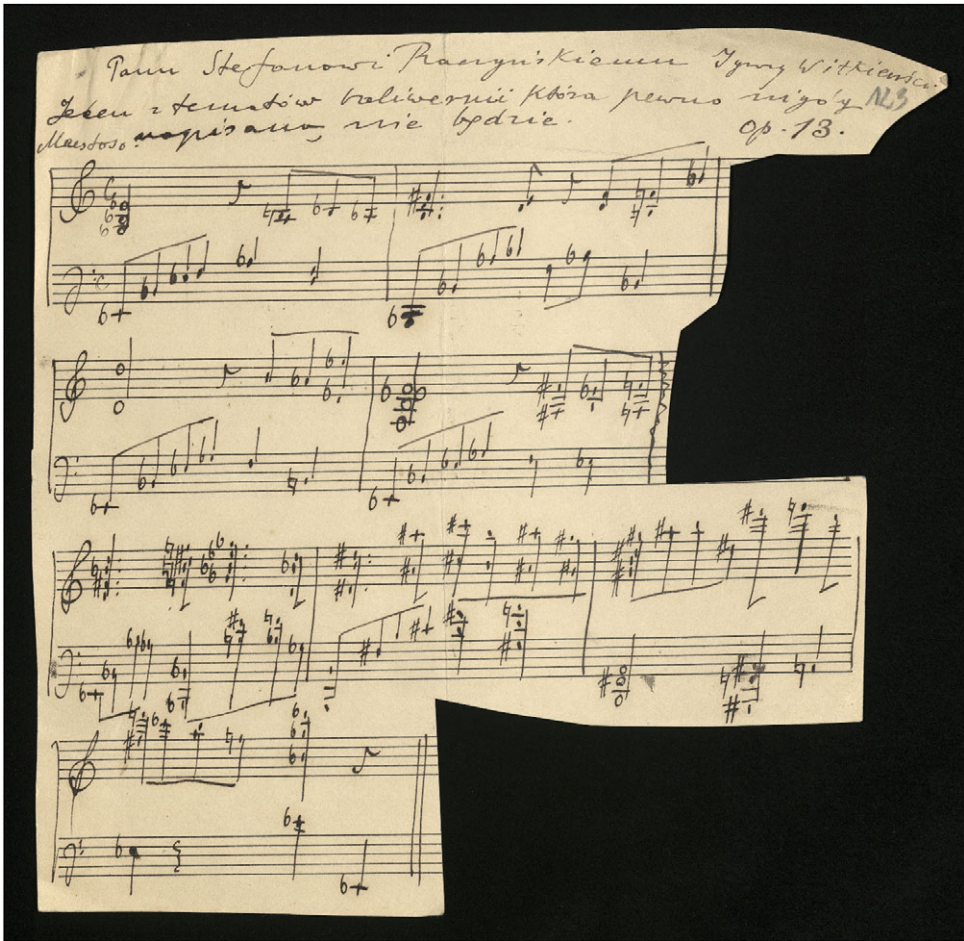 Panu Stefanowi Raczyńskiemu Ignacy Witkiewicz.
Jeden z tematów baliwernii która pewno nigdy
Maestoso. napisaną nie będzie. Op. 13.